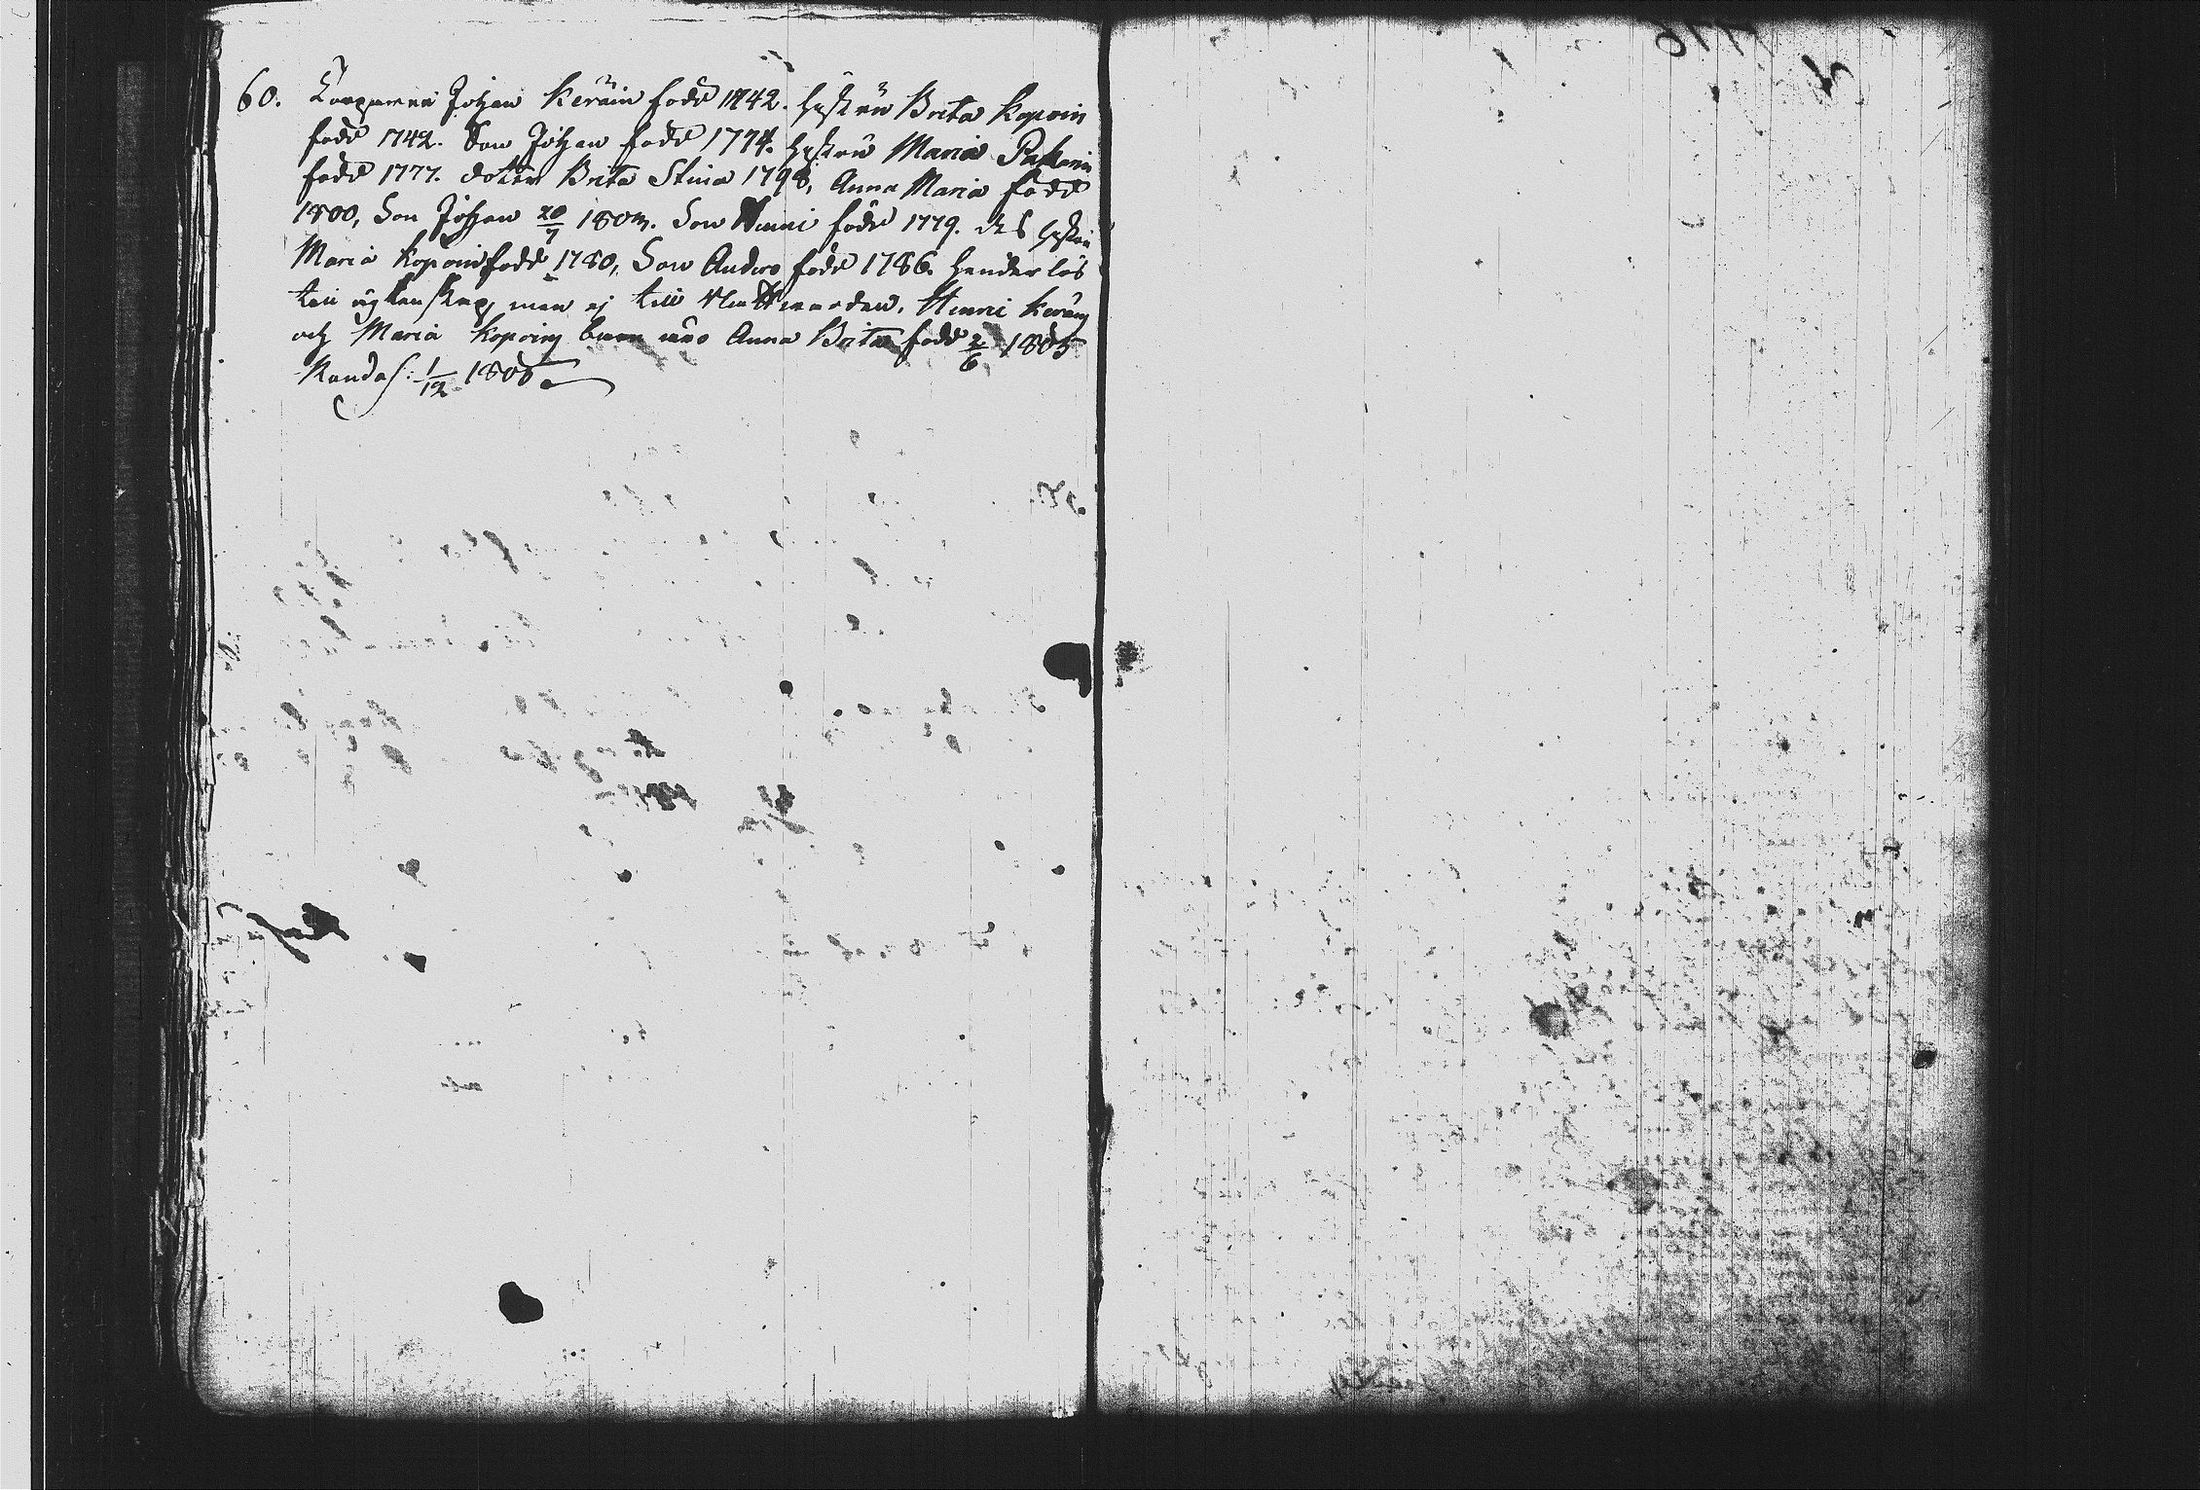 60. Johan Keräin född 1742. Hustru Brita Kopoin
född 1742. Son Johan född 1774. Hustru Maria Pakarin
född 1777. doter Brita Stina 1798, Anna Maria född
1800, Son Johan 20/7 180m. Son Henric född 1779. des Hustru
Maria Kopoin född 1780, Son Anders född 1786. hinderlös
till ägtenskap, men ej till Nattwarden. Henric Keräin
och Maria Kopoin barn Anna Brita född 2/6 1805
1/12 1805